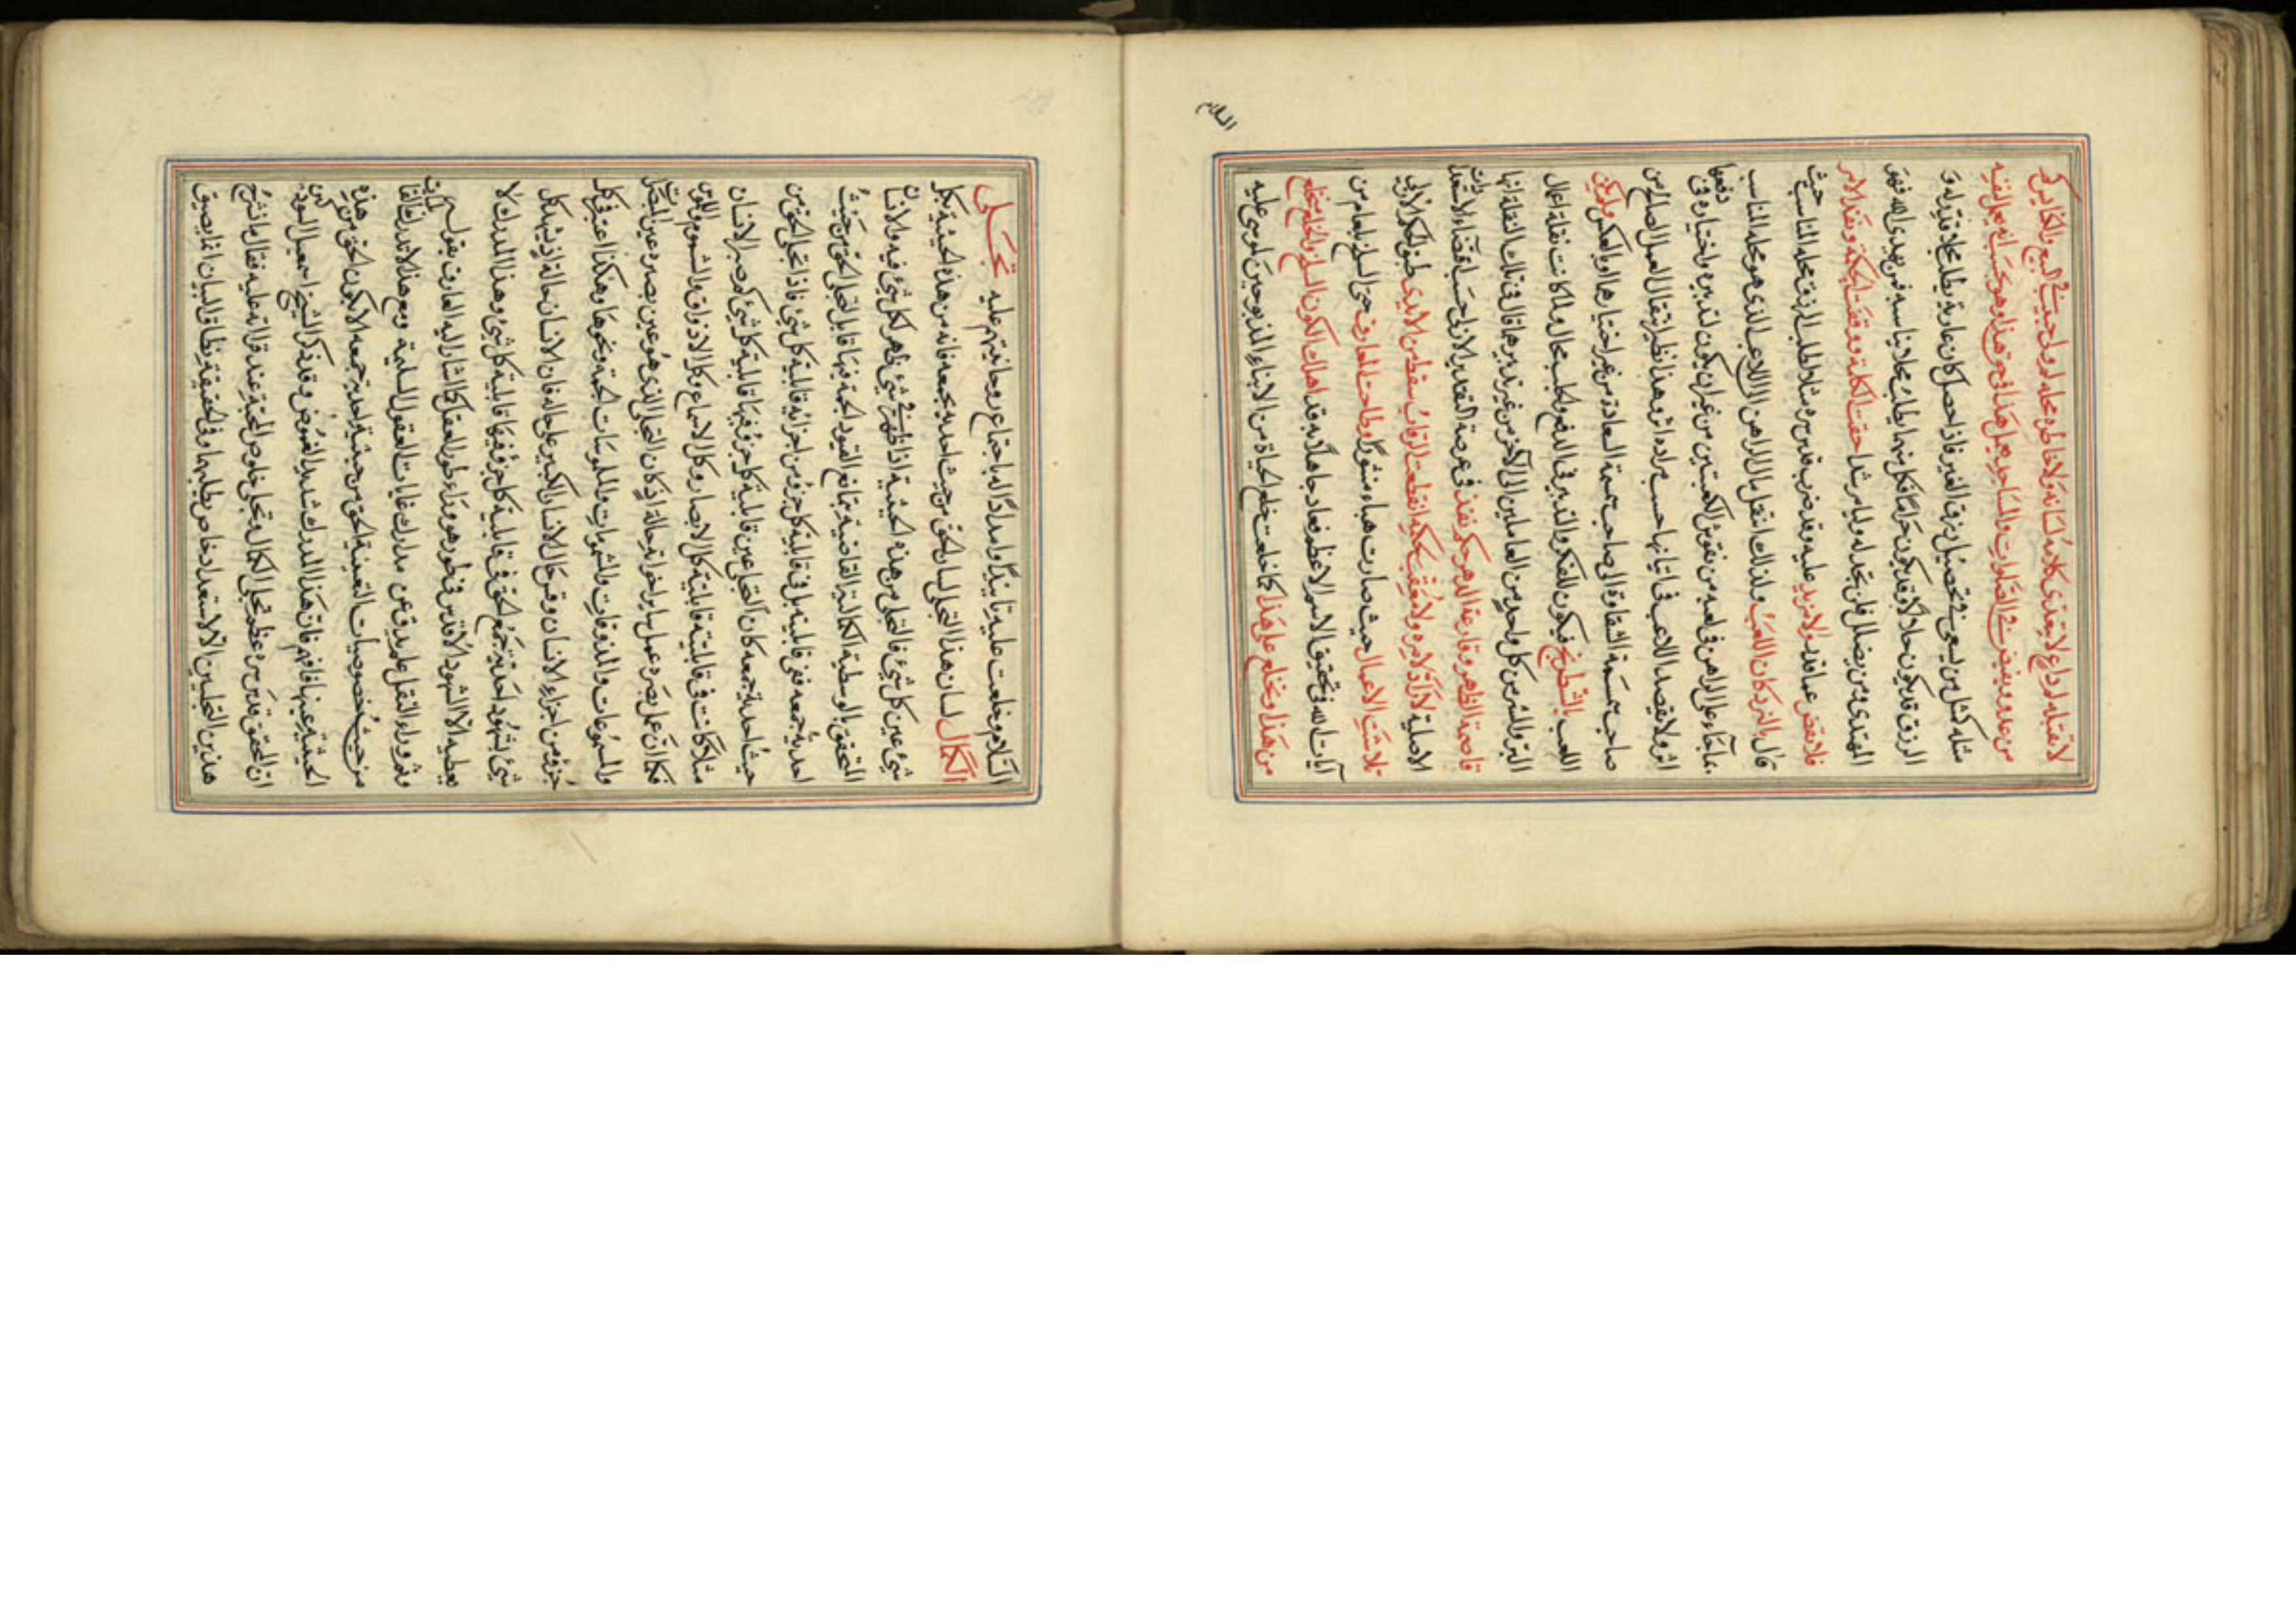 من عدو ويفيض في
مثله كمثل من يسعى في تحصيل رزق الغير فاذا حصل كان عارية يطلب محلا قدر له و
الرزق قد يكون حلالا وقد يكون حراما فكل منهما يطلب محلا يناسبه فمن يهدي الله فهو
المهتدي ومن يضلل فلن تجد له وليا مرشدا حقت الكلمة ووقفت الحكمة ونفذ الامر
فلا نقص عما قدر ولا مزيد عليه وقد ضرب قدس سره مثلا لطلب الرزق محله المناسب حيث
قال بالنرد كان اللعب ولذلك انتقل مال الراهن الى اللاعب الذي هو محله المناسب
بما جاء على الراهن في لعبه من نقوش الكعبتين من غير ان يكون لتدبيره واختياره في دفعها
اثر ولا يقصد اللاعب في اتيانها حسب مراده اثر وهذا نظير انتقال العمل الصالح من
صاحب قسمة الشقاوة الى صاحب قسمة السعادة من غير اختيارهما او بالعكس ولم يكن
اللعب بالشطرنج فيكون للفكر والتدبير في الدفع والجلب مجال ولما كانت نقلة اعمال
البر والشر من كل واحد من العاملين الى الآخر من غير تدبيرهما قال في تلك النقلة انها
قاصمة الظهر وقارعة الدهر حكم نفذ في عرصة التقدير الازلي حسب اقتضاء الاستعدادات
الاصلية لا راد لامره ولا معقب لحكمه انقطعت الرقاب سقط من الايدي طبق الحكم الازلي
تلاشت الاعمال حيث صارت هباء منثورا وطاحت المعارف حتى انسلخ بلعام من
آيات الله في تحقيق الاسم الاعظم فعاد جاهلا به قد اهلك الكون السلخ والخلع يخلع
من هذا ويخلع على هذا كما خلعت خلع الحياة من الابناء المذبوحين لموسى عليه
السلام
السلام وخلعت عليه تأييدا وامدادا له باجتماع روحانيتهم عليه تجلى
الكمال لسان هذا التجلي لسان الحق من حيث احدية جمعه فانه من هذه الحيثية كل
شيء عين كل شيء فالتجلي من هذه الحيثية اذا ظهر في شيء ظهر لكل شيء فيه والانسان
المتحقق بالوسطية الكمالية القاضية بتمانع القيود الجمة فيها قابل لتجلي الحق من حيث
احدية جمعه ففي قابليته بل في قابلية كل جزء من اجزائه قابلية كل شيء فاذا تجلى الحق من
حيث احدية جمعه كان التجلي عين قابلية كل جزء فيها قابلية كل شيء كبصر الانسان
مثلا كانت في قابليته قابلية كل الابصار وكل الاسماع وكل الاذواق والشموم واللموس
فكما ان عمل بصره عمل سائر اخواته حالة اذ كان التجلي الذي هو عين بصره عين المبصرات
والمسموعات والمذوقات والمشمومات والملموسات الجمة ونحوها وهكذا اعتبر في كل
جزء من اجزاء الانسان وقس حال الانسان الكبير على حاله فان الانسان حالة اذ يشهد كل
شيء يشهود احدية جمع الحق في قابلية كل جزء فيها قابلية كل شيء وهذا المدرك لا
يعطيه الا الشهود الاقدس في طور هو وراء طور العقل كما اشار اليه العارف بقوله
وثم وراء النقل علم يدق عن مدارك غايات العقول السليمة ومع هذا لا تدرك
من حيث خصوصيات التعينية الحق من حيثية احدية جمعه الا بكون الحق من هذه
الحيثية عينها فافهم فان هذا المدرك شديد الغموض وقد ذكر الشيخ اسمعيل السودكين
ان المحقق قدس سره عظم تجلي الكمال وتجلي خلوص المحبة عند قراءته عليه فقال ما نشرح
هذين التجليين الا لاستعداد خاص يطلبهما وفي الحقيقة نطاق البيان انما يضيق